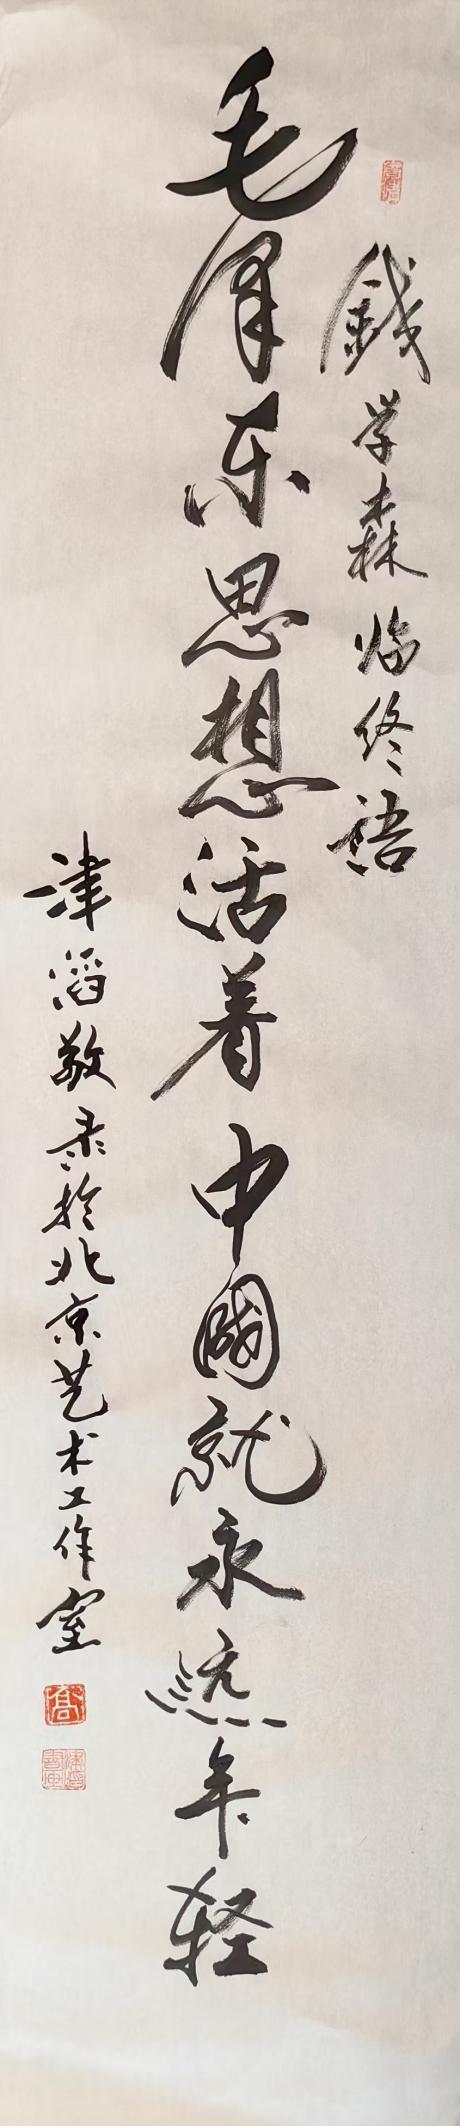 錢学森临终语
毛泽东思想活着中國就永远年轻
津滔敬录於北京艺术工作室
髙